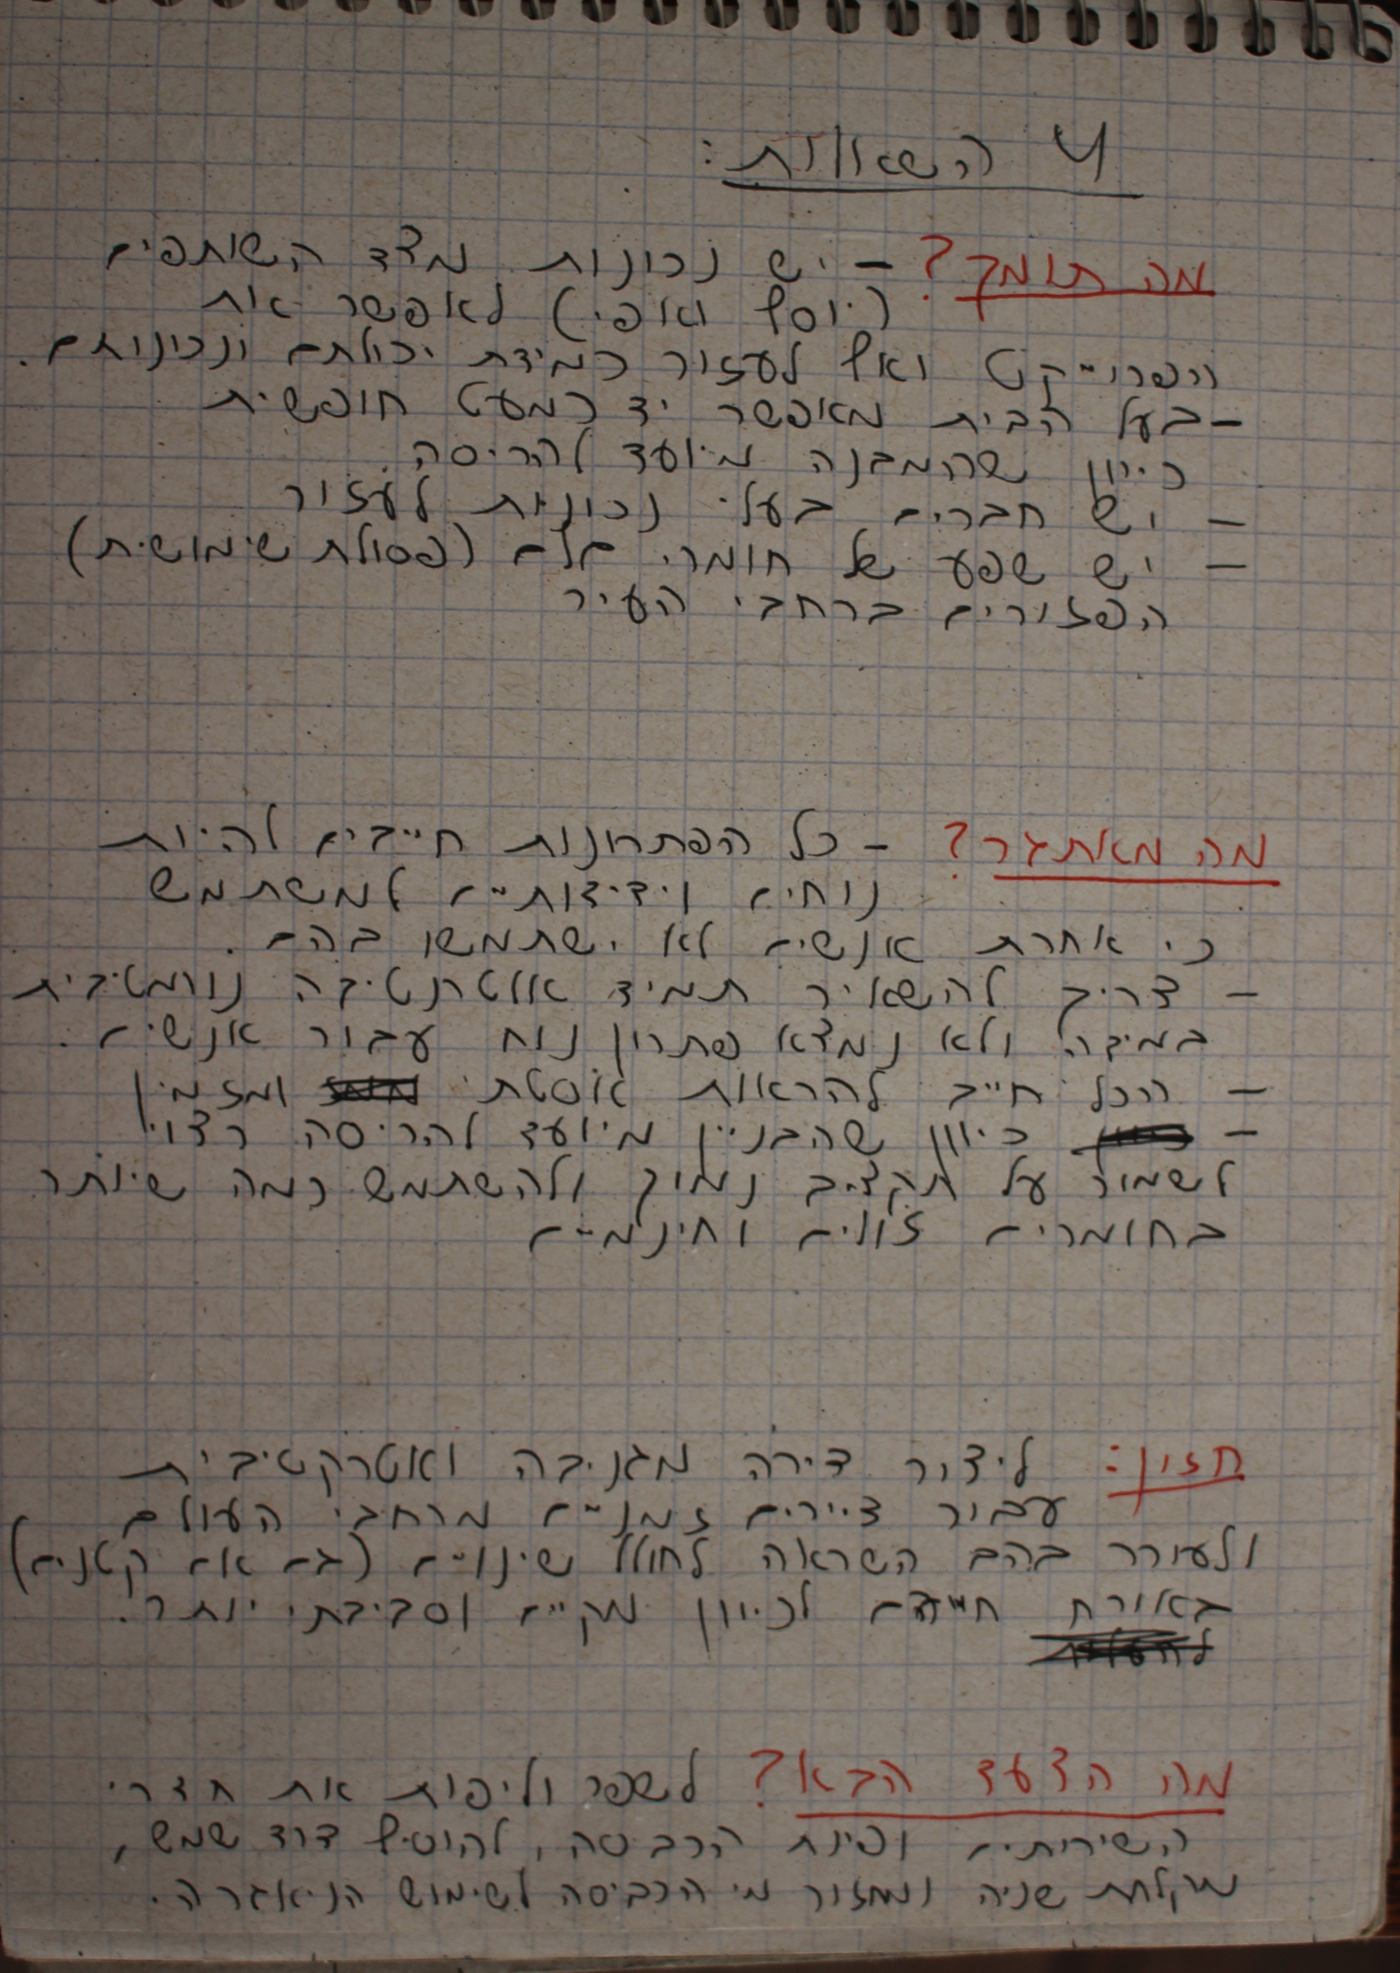 4 השאלות:
מה תומך? – יש נכונות מצד השותפים
(יוסף ואופי) לאפשר את
הפרוייקט ואף לעזור כמידת יכולתם ונכונותם.
– בעל הבית מאפשר יד כמעט חופשית
כיוון שהמבנה מיועד להריסה.
– יש חברים בעלי נכונות לעזור
– יש שפע של חומרי גלם (פסולת שימושית)
הפזורים ברחבי העיר
מה מאתגר? – כל הפתרונות חייבים להיות
נוחים וידידותיים למשתמש
כי אחרת אנשים לא ישתמשו בהם.
– צריך להשאיר תמיד אלטרנטיבה נורמטיבית
במידה ולא נמצא פתרון נוח עבור אנשים.
– הכל חייב להראות אסטתי ומזמין
– כיוון שהבניין מיועד להריסה רצוי
לשמור על תקציב נמוך ולהשתמש כמה שיותר
בחומרים זולים וחינמיים
חזון: ליצור דירה מגניבה ואטרקטיבית
עבור דיירים זמניים מרחבי העולם
ולעורר בהם השראה לחולל שינויים (גם אם קטנים)
באורח חייהם לכיוון מקיים וסביבתי יותר.
מה הצעד הבא? לשפר וליפות את חדרי
השירותים ופינת הכביסה, להוסיף דוד שמש,
מקלחת שניה ומחזור מי הכביסה לשימוש הניאגרה.